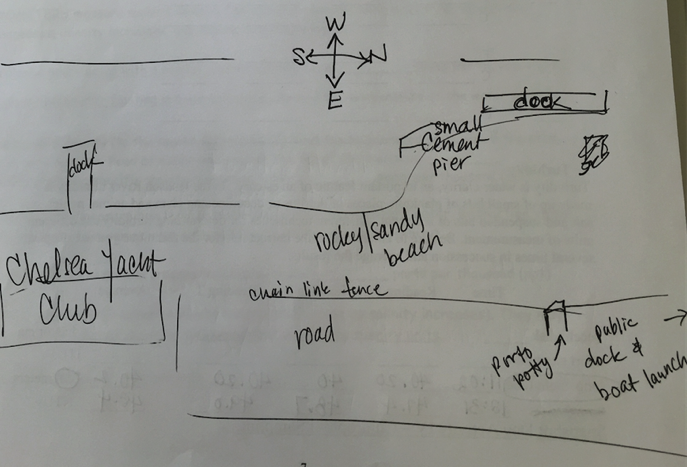 W
S N
E
dock
small
cement
pier
dock
rocky sandy
beach
Chelsea Yacht
Club
chain link fence
road
porto
potty
public
dock &
boat launch